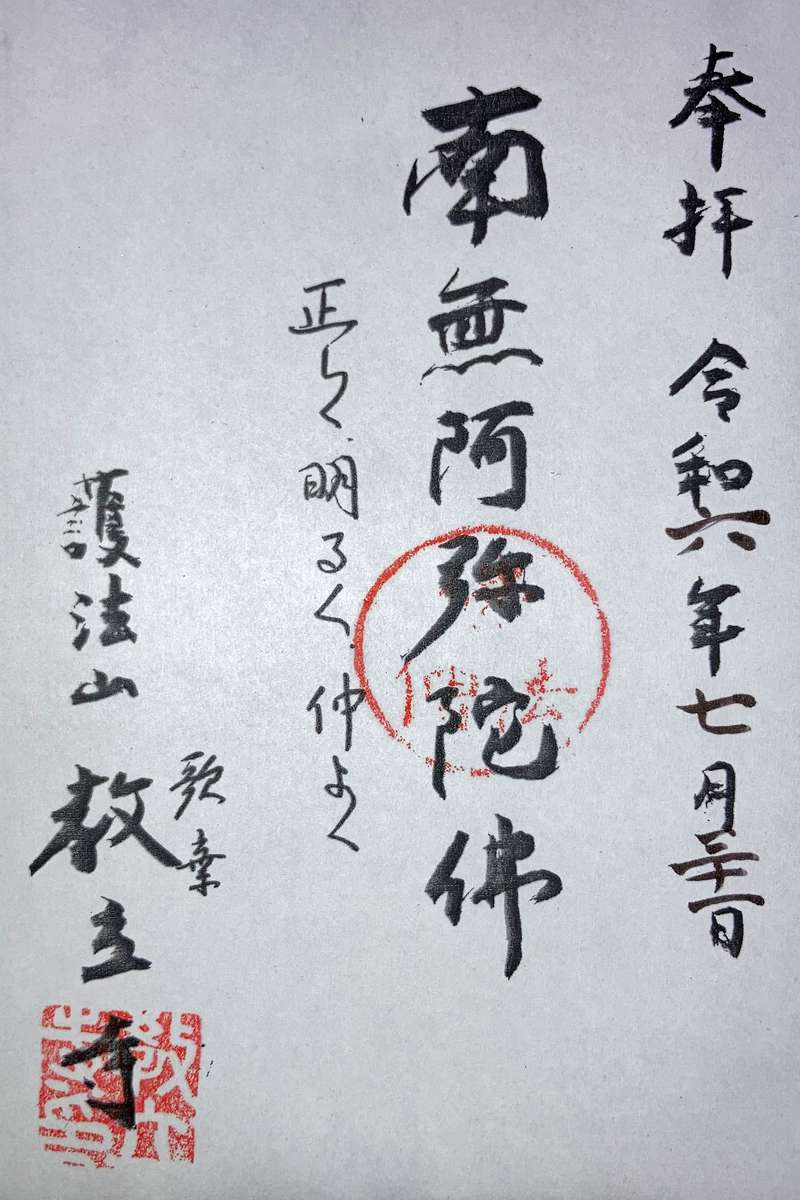 奉拝 令和六年七月三十一日
南無阿弥陀佛
正しく 明るく 仲よく
歌棄
護法山 教立寺